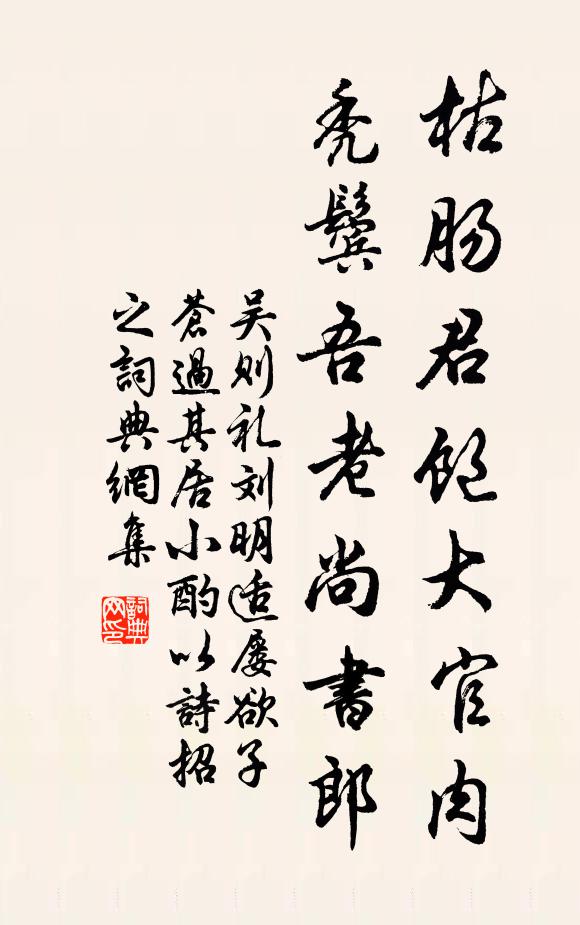 枯肠君饱大官肉
秃鬓吾老尚書郎
吴则礼刘明适屡欲子
蒼過其居小酌以詩招
之詞典網集
詞典
网印